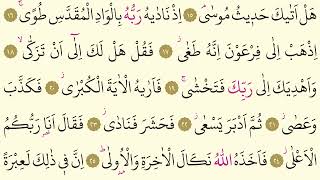 هَلْ اَتٰيكَ حَد۪يثُ مُوسٰىۢ ﴿١٥﴾ اِذْ نَادٰيهُ رَبُّهُ بِالْوَادِ الْمُقَدَّسِ طُوًىۚ ﴿١٦﴾
اِذْهَبْ اِلٰى فِرْعَوْنَ اِنَّهُ طَغٰىۘ ﴿١٧﴾ فَقُلْ هَلْ لَكَ اِلٰٓى اَنْ تَزَكّٰىۙ ﴿١٨﴾
وَاَهْدِيَكَ اِلٰى رَبِّكَ فَتَخْشٰىۚ ﴿١٩﴾ فَاَرٰيهُ الْاٰيَةَ الْكُبْرٰىۘ ﴿٢٠﴾ فَكَذَّبَ
وَعَصٰىۘ ﴿٢١﴾ ثُمَّ اَدْبَرَ يَسْعٰىۘ ﴿٢٢﴾ فَحَشَرَ فَنَادٰىۘ ﴿٢٣﴾ فَقَالَ اَنَا۬ رَبُّكُمُ
الْاَعْلٰىۘ ﴿٢٤﴾ فَاَخَذَهُ اللّٰهُ نَكَالَ الْاٰخِرَةِ وَالْاُو۫لٰىۜ ﴿٢٥﴾ اِنَّ ف۪ي ذٰلِكَ لَعِبْرَةً